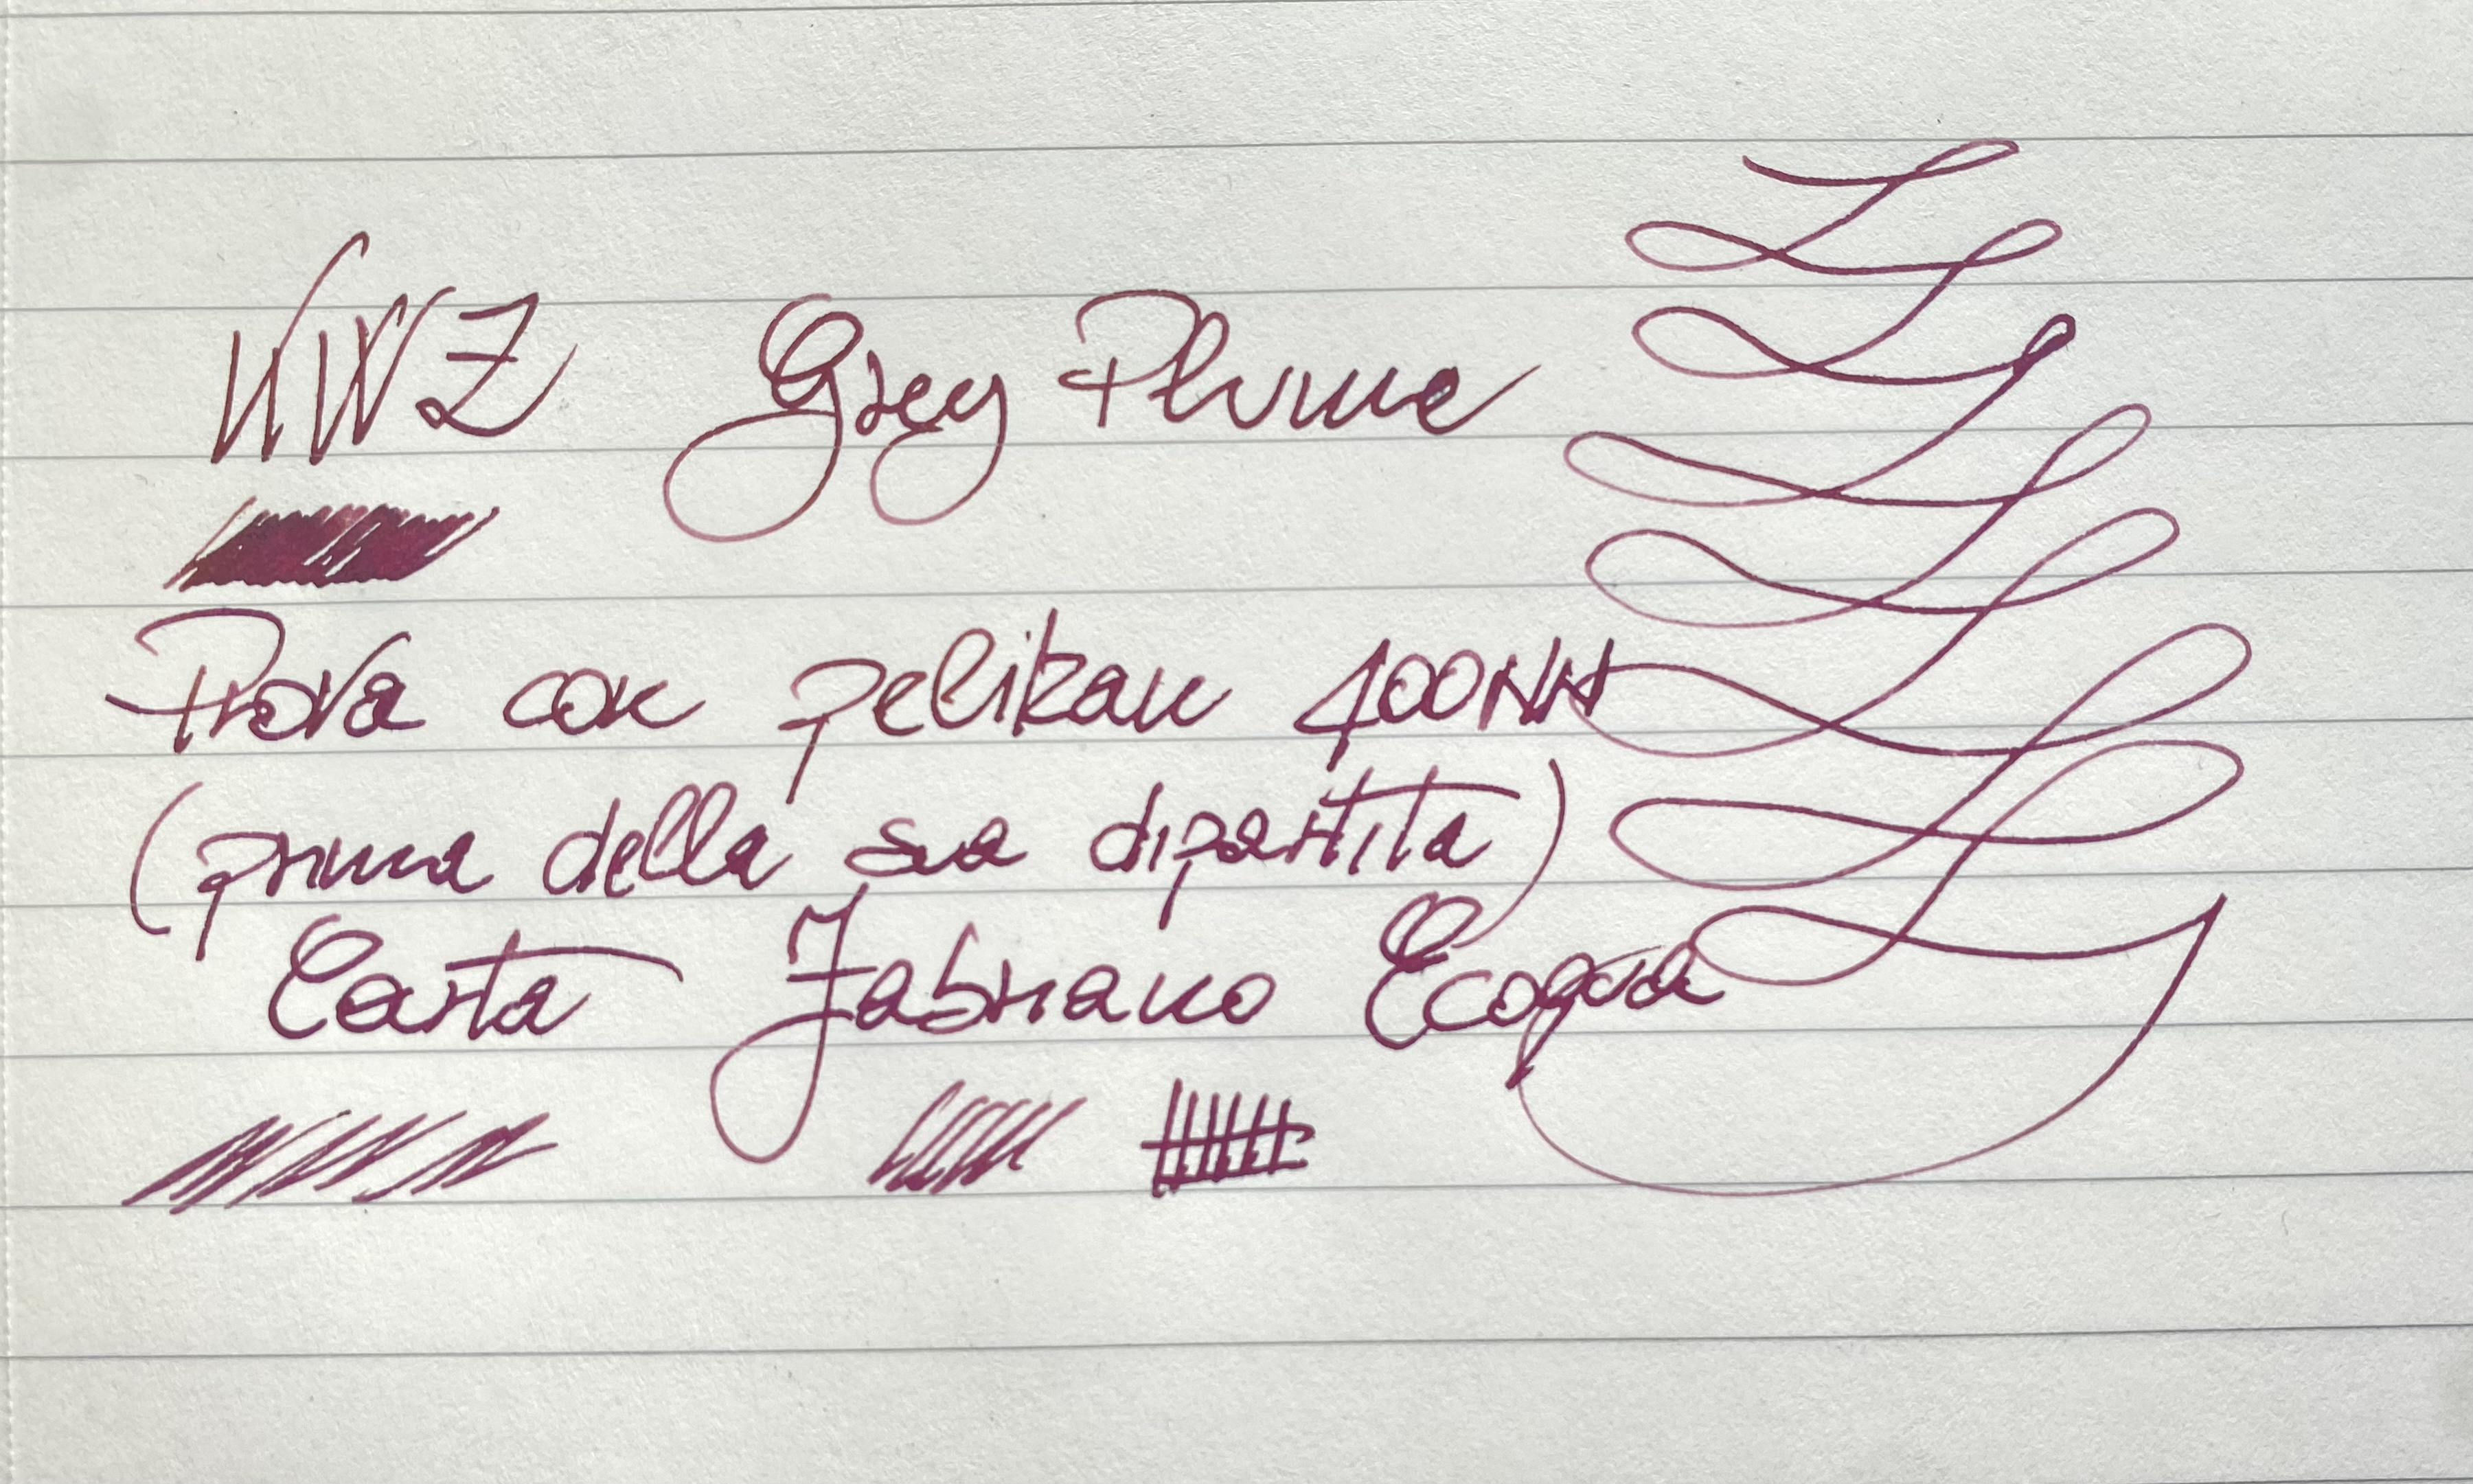 KWZ Grey Plume
Prova con pelikan 400NN
(prima della sua dipartita)
Carta Fabriano Ecoqua